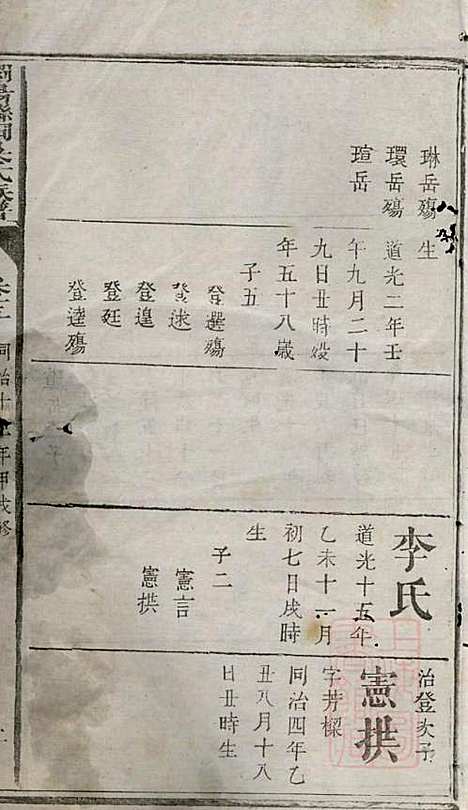 琳岳殤
環岳殤
瑄岳
生
道光二年壬
午九月二十
九日丑時歿
年五十八歲
子五
登選殤
登逑
登遑
登廷
登逵殤
李氏
道光十五年
乙未十一月
初七日戌時
生
子二
憲言
憲拱
治登次子
憲拱
字芳樑
同治四年乙
丑八月十八
日丑時生
氏族譜
卷三
同治十三年甲戌修